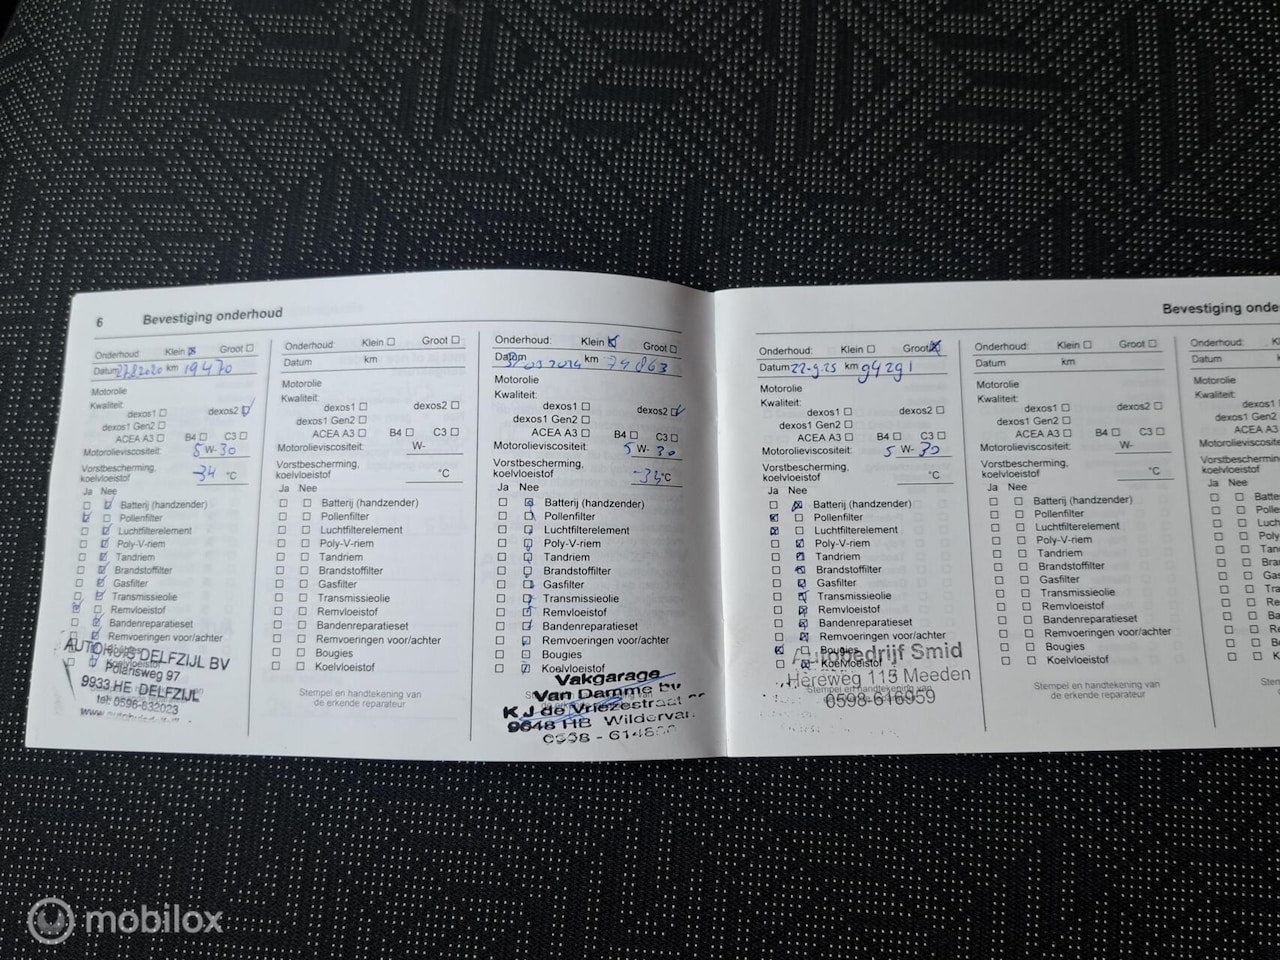 6 Bevestiging onderhoud
Onderhoud: Klein Groot
Datum 27.8.2020 km 19470
Motorolie
Kwaliteit:
dexos1 dexos2
dexos1 Gen2
ACEA A3 B4 C3
Motorolieviscositeit: 5 W- 30
Vorstbescherming,
koelvloeistof -34 °C
Ja Nee
Batterij (handzender)
Pollenfilter
Luchtfilterelement
Poly-V-riem
Tandriem
Brandstoffilter
Gasfilter
Transmissieolie
Remvloeistof
Bandenreparatieset
Remvoeringen voor/achter
Koelvloeistof
AUTOHUIS DELFZIJL BV
Polarisweg 97
9933 HE DELFZIJL
tel: 0596-632023
Onderhoud: Klein Groot
Datum km
Motorolie
Kwaliteit:
dexos1 dexos2
dexos1 Gen2
ACEA A3 B4 C3
Motorolieviscositeit: W-
Vorstbescherming,
koelvloeistof °C
Ja Nee
Batterij (handzender)
Pollenfilter
Luchtfilterelement
Poly-V-riem
Tandriem
Brandstoffilter
Gasfilter
Transmissieolie
Remvloeistof
Bandenreparatieset
Remvoeringen voor/achter
Bougies
Koelvloeistof
Stempel en handtekening van
de erkende reparateur
Onderhoud: Klein Groot
Datum 2024 km 74863
Motorolie
Kwaliteit:
dexos1 dexos2
dexos1 Gen2
ACEA A3 B4 C3
Motorolieviscositeit: 5 W- 30
Vorstbescherming,
koelvloeistof °C
Ja Nee
Batterij (handzender)
Pollenfilter
Luchtfilterelement
Poly-V-riem
Tandriem
Brandstoffilter
Gasfilter
Transmissieolie
Remvloeistof
Bandenreparatieset
Remvoeringen voor/achter
Bougies
Koelvloeistof
Vakgarage
Van Damme bv
K J de Vriezestraat
9648 HB Wildervan
Bevestiging onde
Onderhoud: Klein Groot
Datum 22-9-25 km 94291
Motorolie
Kwaliteit:
dexos1 dexos2
dexos1 Gen2
ACEA A3 B4 C3
Motorolieviscositeit: 5 W- 30
Vorstbescherming,
koelvloeistof °C
Ja Nee
Batterij (handzender)
Pollenfilter
Luchtfilterelement
Poly-V-riem
Tandriem
Brandstoffilter
Gasfilter
Transmissieolie
Remvloeistof
Bandenreparatieset
Remvoeringen voor/achter
Bougies
Koelvloeistof
Stempel en handtekening van
Autobedrijf Smid
Hereweg 115 Meeden
0598-616959
Onderhoud: Klein Groot
Datum km
Motorolie
Kwaliteit:
dexos1 dexos2
dexos1 Gen2
ACEA A3 B4 C3
Motorolieviscositeit: W-
Vorstbescherming,
koelvloeistof °C
Ja Nee
Batterij (handzender)
Pollenfilter
Luchtfilterelement
Poly-V-riem
Tandriem
Brandstoffilter
Gasfilter
Transmissieolie
Remvloeistof
Bandenreparatieset
Remvoeringen voor/achter
Bougies
Koelvloeistof
Stempel en handtekening van
de erkende reparateur
Onderhoud: K
Datum
Motorolie
Kwaliteit:
dexos1
dexos1 Gen2
ACEA A3
Motorolieviscosite
Vorstbescherming,
koelvloeistof
Ja Nee
Batte
Polle
Luch
Poly-
Tand
Bran
Gasf
Tra
Rem
Ban
Rem
Bou
Koe
Stem
mobilox